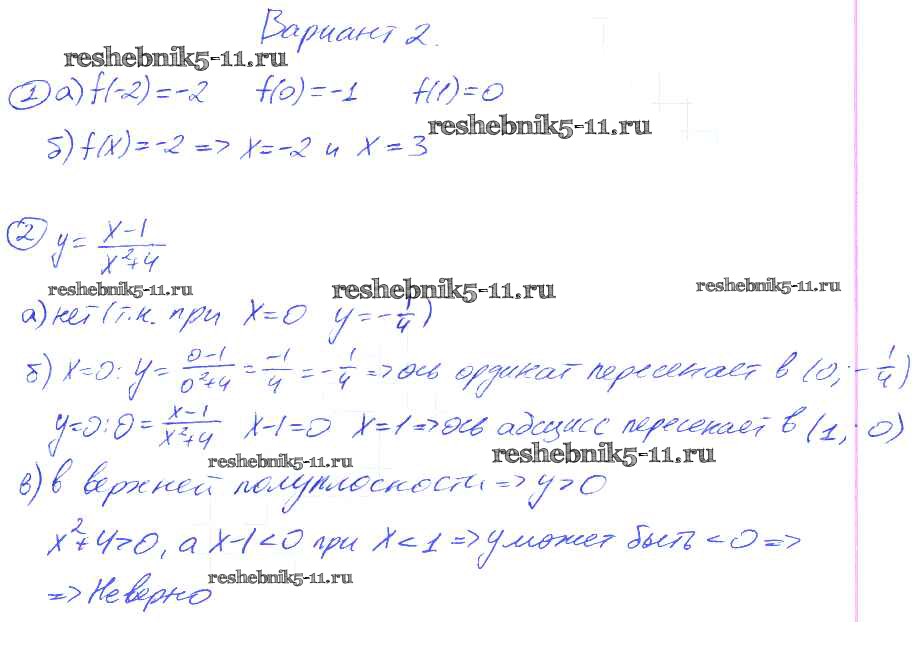 Вариант 2.
reshebnik5-11.ru
1 а) f(-2)=-2 f(0)=-1 f(1)=0
reshebnik5-11.ru
б) f(x)=-2 => x=-2 и x=3
2 y= x-1/x²+4
reshebnik5-11.ru reshebnik5-11.ru reshebnik5-11.ru
а) нет (т.к. при x=0 y=-1/4)
б) x=0: y= 0-1/0²+4 = -1/4 = -1/4 => ось ординат пересекает в (0; -1/4)
y=0: 0= x-1/x²+4 x-1=0 x=1 => ось адсцисс пересекает в (1; 0)
reshebnik5-11.ru reshebnik5-11.ru
в) в верхней полуплосности => y>0
x²+4>0, а x-1<0 при x<1 => y может быть <0 =>
reshebnik5-11.ru
=> Неверно